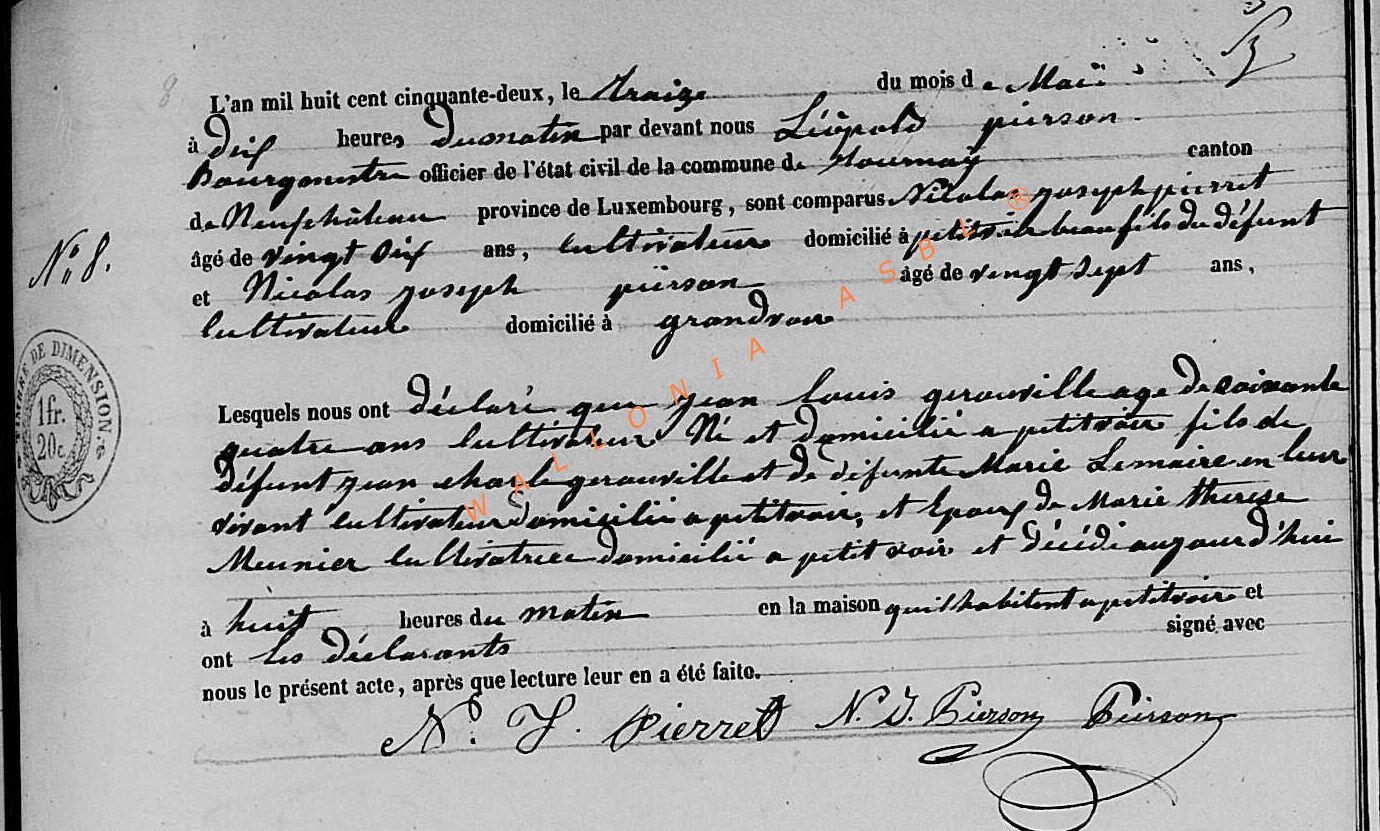 8
L'an mil huit cent cinquante-deux, le traize du mois de Maii
à dix heures du matin par devant nous Léopold piërson
Bourgmestre officier de l'état civil de la commune de Tournay canton
de Neufchâteau province de Luxembourg, sont comparus Nicolas joseph pierret
âgé de vingt dix ans, Cultivateur domicilié à petitvoir beau fils du défunt
N° 8.
et Nicolas joseph piërson âgé de vingt sept ans,
Cultivateur domicilié à grandvoir
Lesquels nous ont déclaré que jean louis gerouville age de soixante
quatre ans Cultivateur Né et domicilié a petitvoir fils de
défunt jean charle gerouville et de défunte Marie Lemaire en leur
vivant Cultivateurs domicilié a petitvoir, et Epoux de Marie therese
Meunier Cultivatrice domicilié a petit voir et décédé aujourd'hui
à huit heures du matin en la maison qui habitent a petitvoir et
ont les déclarants signé avec
nous le présent acte, après que lecture leur en a été faite.
N. J. Pierret N. J. Pierson Pierson
TIMBRE DE DIMENSION
1 fr.
20 c.
WALLONIA ASBL ®